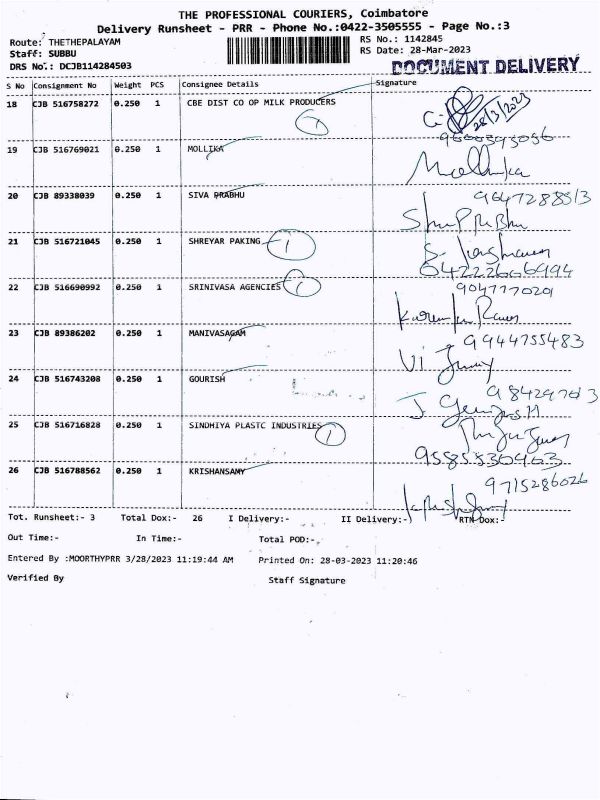 THE PROFESSIONAL COURIERS, Coimbatore
Delivery Runsheet - PRR - Phone No.:0422-3505555 - Page No.:3
Route: THETHEPALAYAM RS No.: 1142845
Staff: SUBBU RS Date: 28-Mar-2023
DRS No.: DCJB114284503 DOCUMENT DELIVERY
S No Consignment No Weight PCS Consignee Details Signature
18 CJB 516758272 0.250 1 CBE DIST CO OP MILK PRODUCERS 28/3/2023
19 CJB 516769021 0.250 1 MOLLIKA Mollika
20 CJB 89338039 0.250 1 SIVA PRABHU
21 CJB 516721045 0.250 1 SHREYAR PAKING 1
04222666994
22 CJB 516690992 0.250 1 SRINIVASA AGENCIES 1
23 CJB 89386202 0.250 1 MANIVASAGAM 9944755483
24 CJB 516743208 0.250 1 GOURISH
25 CJB 516716828 0.250 1 SINDHIYA PLASTC INDUSTRIES 1
9585830463
26 CJB 516788562 0.250 1 KRISHANSAMY 9715286026
Tot. Runsheet:- 3 Total Dox:- 26 I Delivery:- II Delivery:- RTN Dox:-
Out Time:- In Time:- Total POD:-
Entered By :MOORTHYPRR 3/28/2023 11:19:44 AM Printed On: 28-03-2023 11:20:46
Verified By Staff Signature